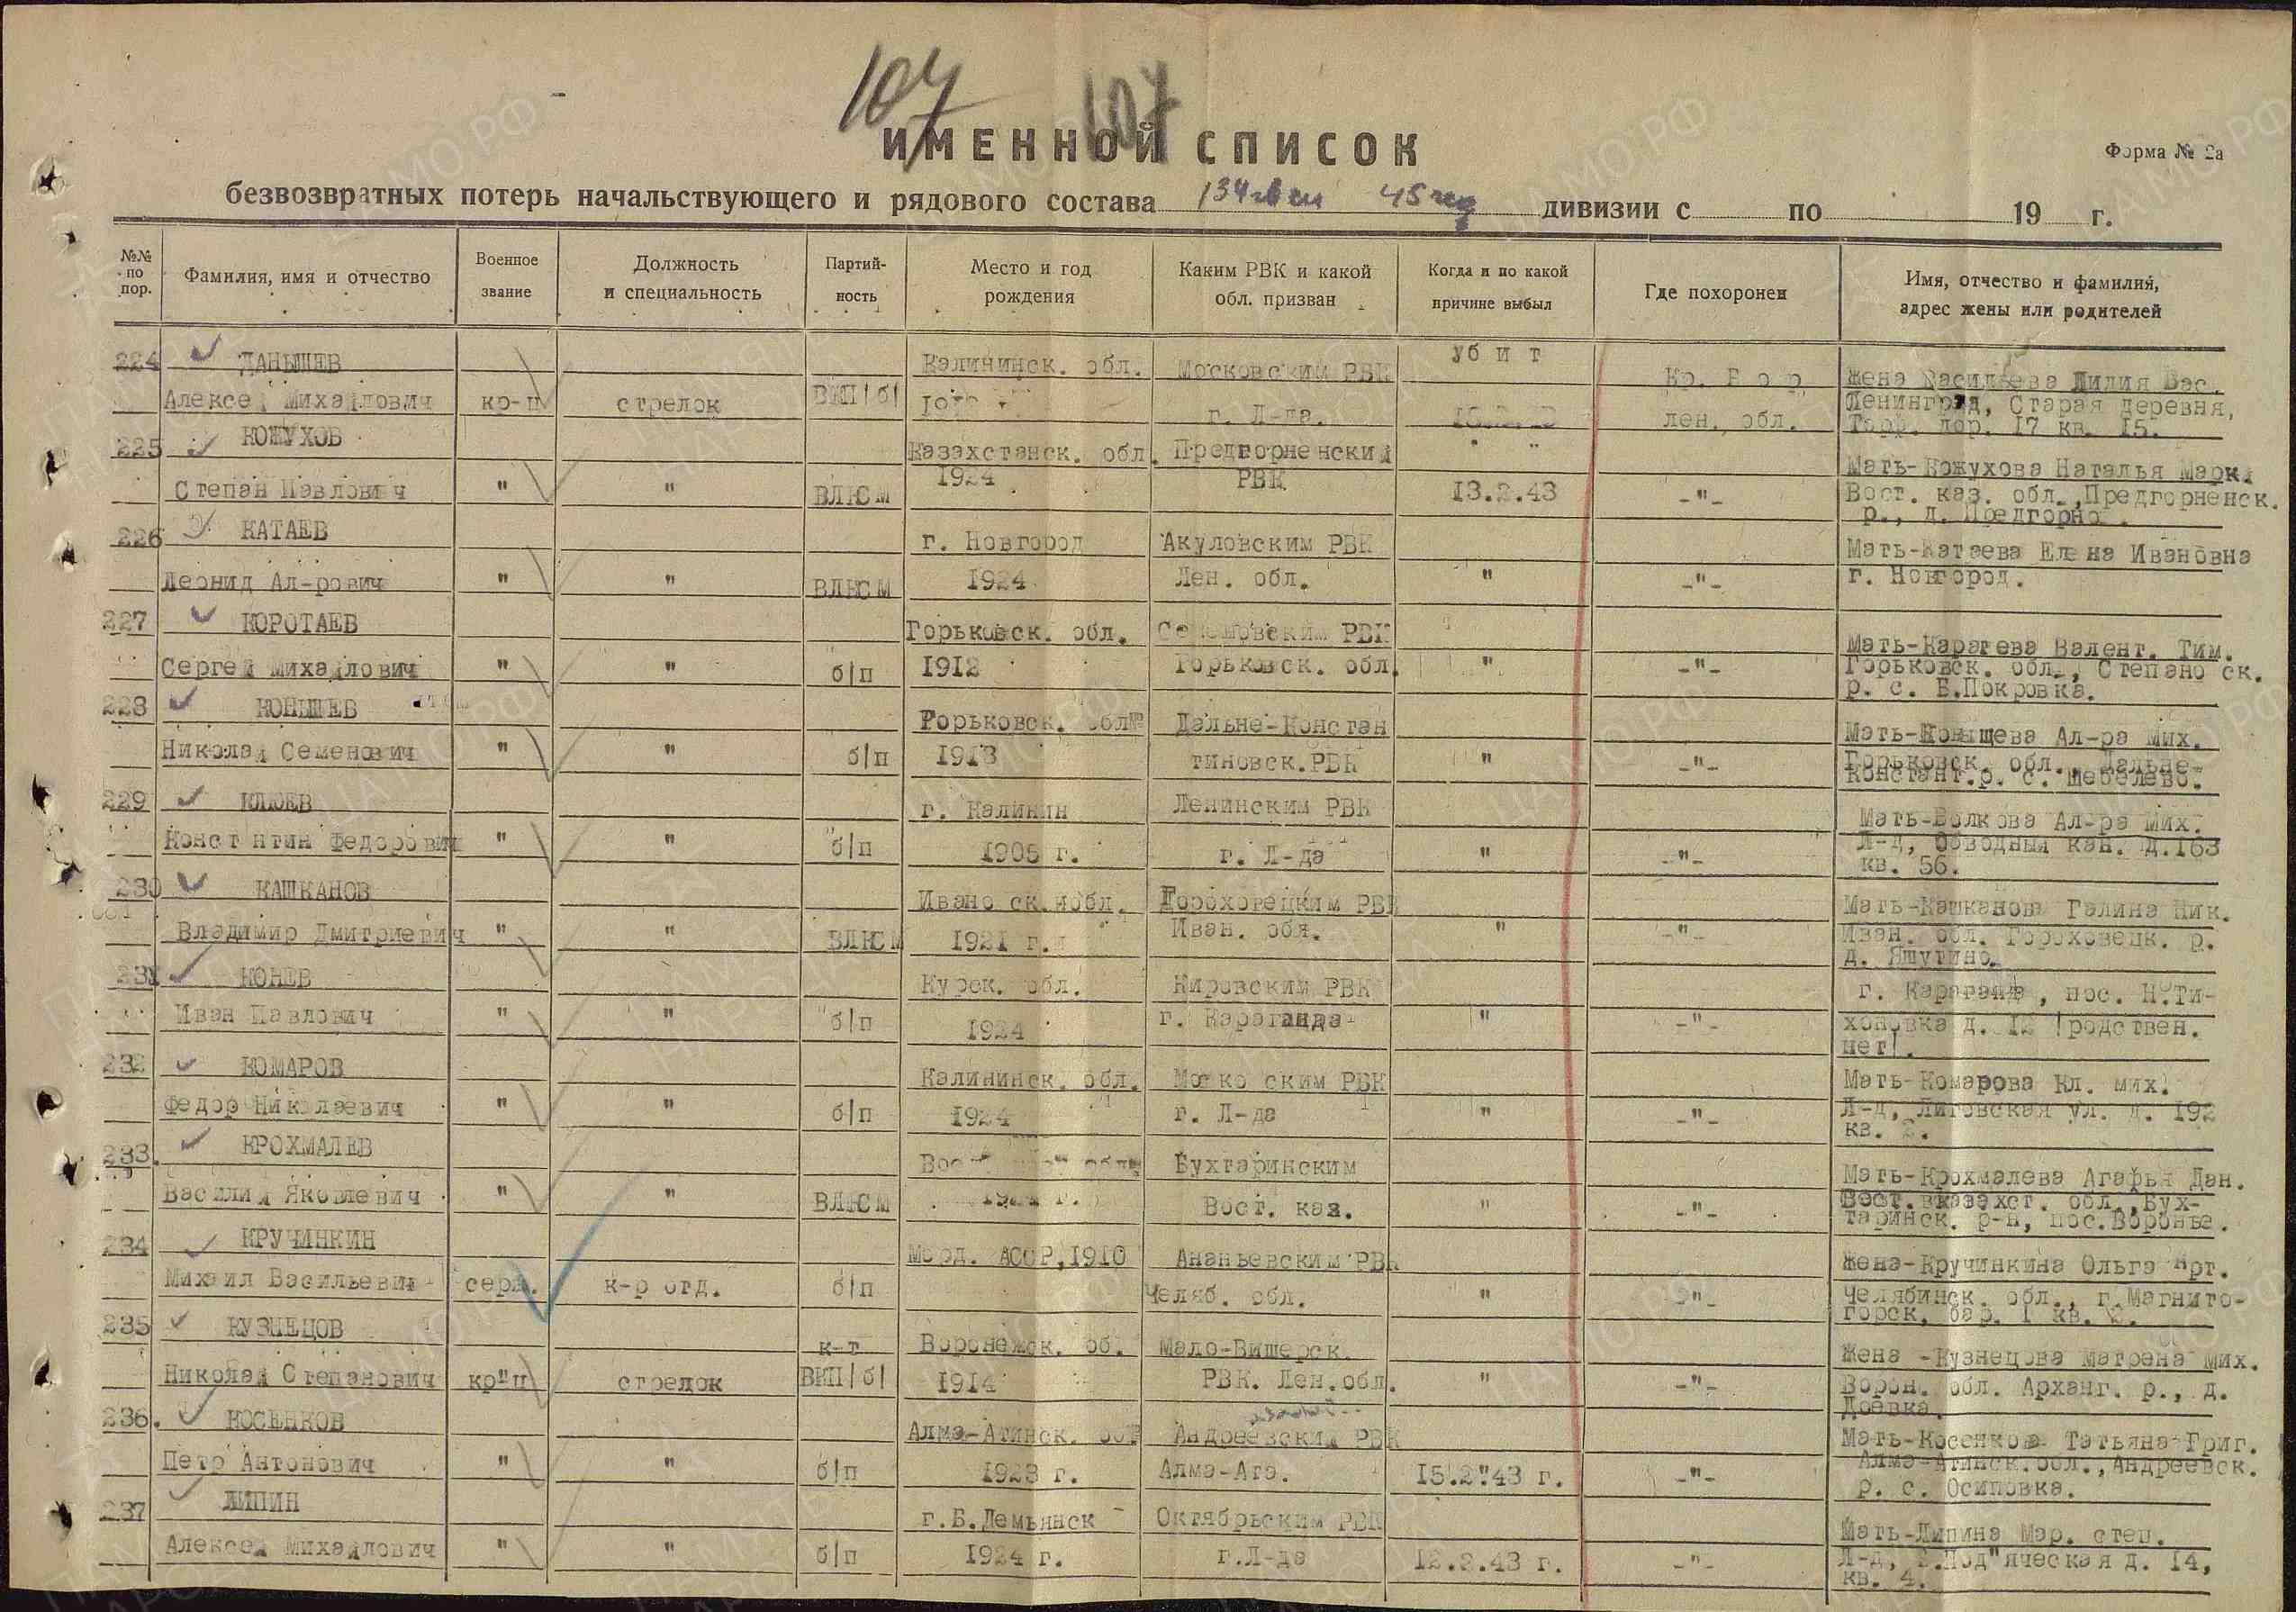 107
107
ИМЕННОЙ СПИСОК
Форма № 2а
безвозвратных потерь начальствующего и рядового состава 134 гв сп 45 гсд дивизии с по 19 г.
№№ по пор.
Фамилия, имя и отчество
Военное звание
Должность и специальность
Партийность
Место и год рождения
Каким РВК и какой обл. призван
Когда и по какой причине выбыл
Где похоронен
Имя, отчество и фамилия, адрес жены или родителей
224 ДАНЫШЕВ Калининск. обл. Московским РВК убит Кр. Бор Жена Васильева Лидия Вас.
Алексей Михайлович кр-ц стрелок ВКП/б/ г. Л-да. лен. обл. Ленинград, Старая деревня,
дор. 17 кв. 15.
225 КОЖУХОВ Казахстанск. обл. Предгорненский " " Мать-Кожухова Наталья Марк.
Степан Павлович " " ВЛКСМ 1924 РВК 13.2.43 -"- Вост. каз. обл., Предгорненск.
р., д. Предгорно
226 КАТАЕВ г. Новгород Акуловским РВК Мать-Катаева Елена Ивановна
Леонид Ал-рович " " ВЛКСМ 1924 Лен. обл. " -"- г. Новгород.
227 КОРОТАЕВ Горьковск. обл. РВК Мать-Каратева Валент. Тим.
Сергей Михайлович " " б/п 1912 Горьковск. обл. " -"- Горьковск. обл., Степано ск.
р. с. Б.Покровка.
228 КОНЫШЕВ Горьковск. обл. Дальне-Констан Мать-Конышева Ал-ра Мих.
Николай Семенович " " б/п 1913 тиновск.РВК " -"- Горьковск. обл., Дальне-
Констант.р. с. Шебелево.
229 КЛЮЕВ г. Калинин Ленинским РВК Мать-Волкова Ал-ра Мих.
Конст нтин Федорович " " б/п 1905 г. г. Л-да " -"- Л-д, Обводный кан. д.163
кв. 56.
230 КАШКАНОВ Ивано ск. обл. Гороховецким РВК Мать-Кашканова Галина Ник.
Владимир Дмитриевич " " ВЛКСМ 1921 г. Иван. обл. " -"- Иван. обл. Гороховецк. р.
д. Яшутино.
231 КОНЕВ Курск. обл. Кировским РВК г. Караганда, пос. Н.Ти-
Иван Павлович " " б/п 1924 г. Караганда " -"- хоновка д. 12 /родствен.
нет/.
232 КОМАРОВ Калининск. обл. Моско ским РВК Мать-Комарова Кл. мих.
Федор Николаевич " " б/п 1924 г. Л-да " -"- Л-д, Лиговская ул. д. 192
кв. 2.
233. КРОХМАЛЕВ обл. Бухтаринским Мать-Крохмалева Агафья Дан.
Василий Яковлевич " " ВЛКСМ Вост. каз. " -"- Вост. казахст. обл., Бух-
таринск. р-н, пос.Воронье.
234 КРУЧИНКИН Морд. АССР,1910 Ананьевским РВК Жена-Кручинкина Ольга Арт.
Михаил Васильевич серж. к-р отд. б/п Челяб. обл. " -"- Челябинск. обл., г.Магнито-
горск, бар. 1 кв.
235 КУЗНЕЦОВ к-т Воронежск. об. Мало-Вишерск. Жена -Кузнецова Матрена Мих.
Николай Степанович кр"ц стрелок ВКП/б/ 1914 РВК. Лен.обл. " -"- Ворон. обл. Арханг. р., д.
Доевка.
236. КОСЕНКОВ Алма-Атинск. об. Андреевский РВК Мать-Косенкова Татьяна Григ.
Петр Антонович " " б/п 1923 г. Алма-Ата. 15.2".43 г. -"- Алма-Атинск.обл., Андреевск.
р. с. Осиповка.
237 ЛИПИН г.Б.Демьянск Октябрьским РВК Мать-Липина Мар. степ.
Алексей Михайлович " " б/п 1924 г. г.Л-да 12.2.43 г. -"- Л-д, Под"яческая д. 14,
кв. 4.